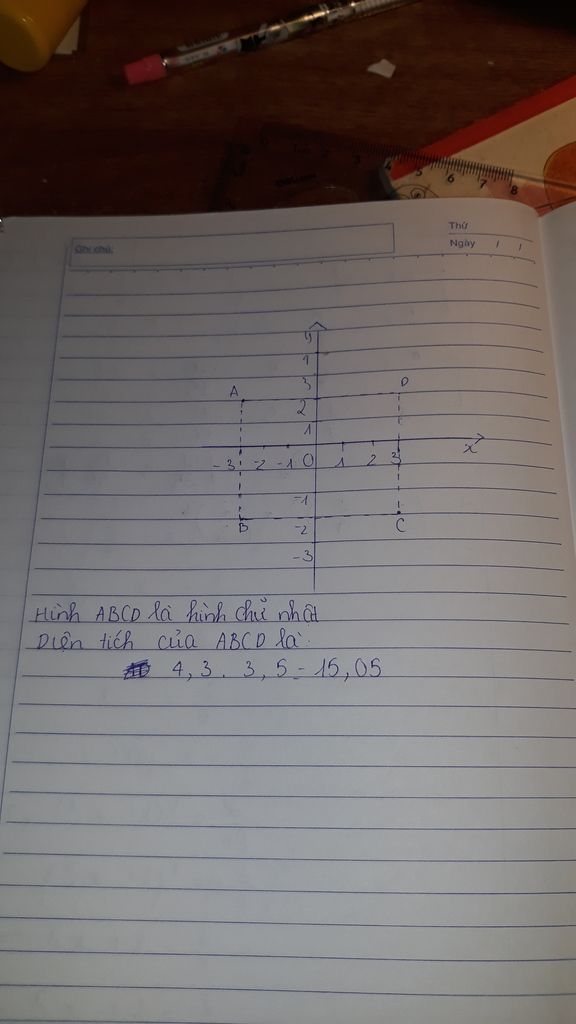 4 5 6 7 8
Ghi chú:
Thứ
Ngày / /
y
1
3
A D
2
1
-3 -2 -1 0 1 2 3 x
-1
B -2 C
-3
Hình ABCD là hình chữ nhật
Diện tích của ABCD là:
4,3 . 3,5 = 15,05